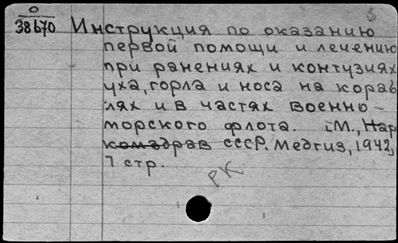 О
38670
Инструкция по оказанию
первой помощи и лечению
при ранениях и контузиях
уха, горла и носа на кораб
лях и в частях военно-
морского флота. М., Нар
комздрав СССР. Медгиз, 1942,
7 стр.
РК